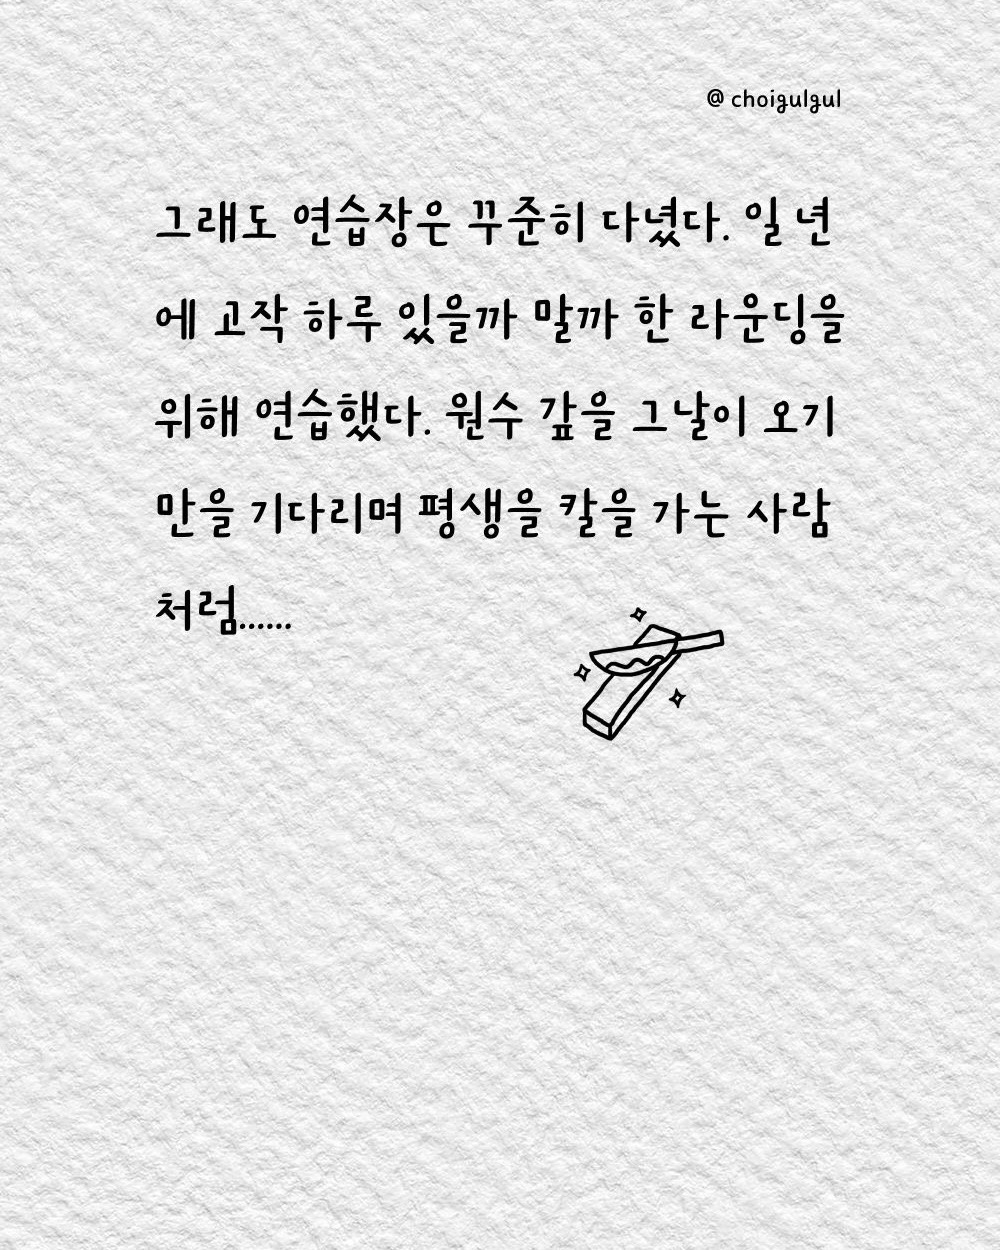 @ choigulgul
그래도 연습장은 꾸준히 다녔다. 일 년
에 고작 하루 있을까 말까 한 라운딩을
위해 연습했다. 원수 갚을 그날이 오기
만을 기다리며 평생을 칼을 가는 사람
처럼......